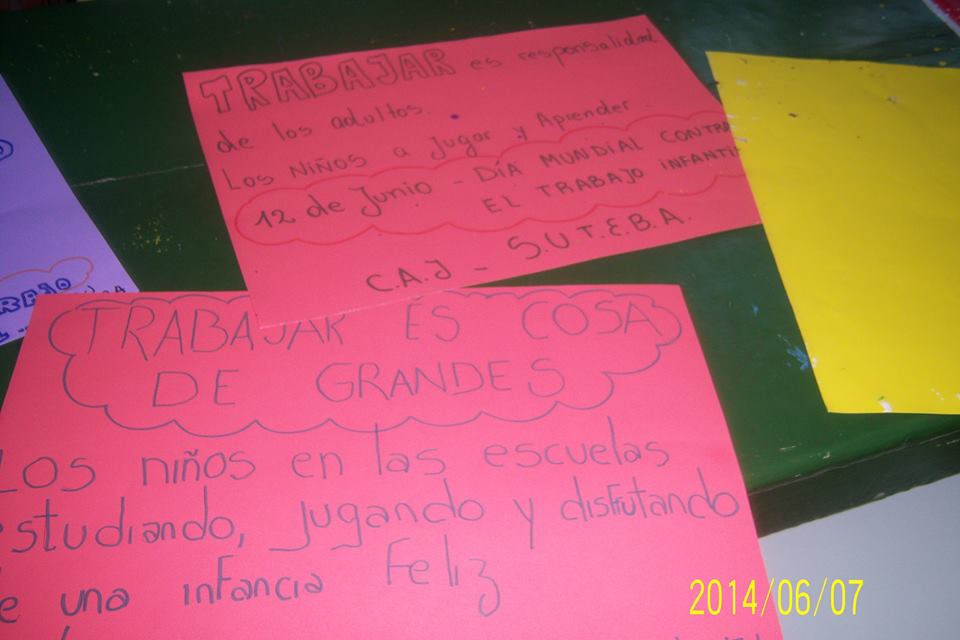 TRABAJAR es responsalidad
de los adultos.
Los Niños a Jugar y Aprender.
12 de Junio - DÍA MUNDIAL CONTRA
EL TRABAJO INFANTI
C.A.J - S.U.T.E.B.A.
TRABAJAR ES COSA
DE GRANDES
Los niños en las escuelas
estudiando, jugando y disfrutando
de una infancia Feliz
2014/06/07